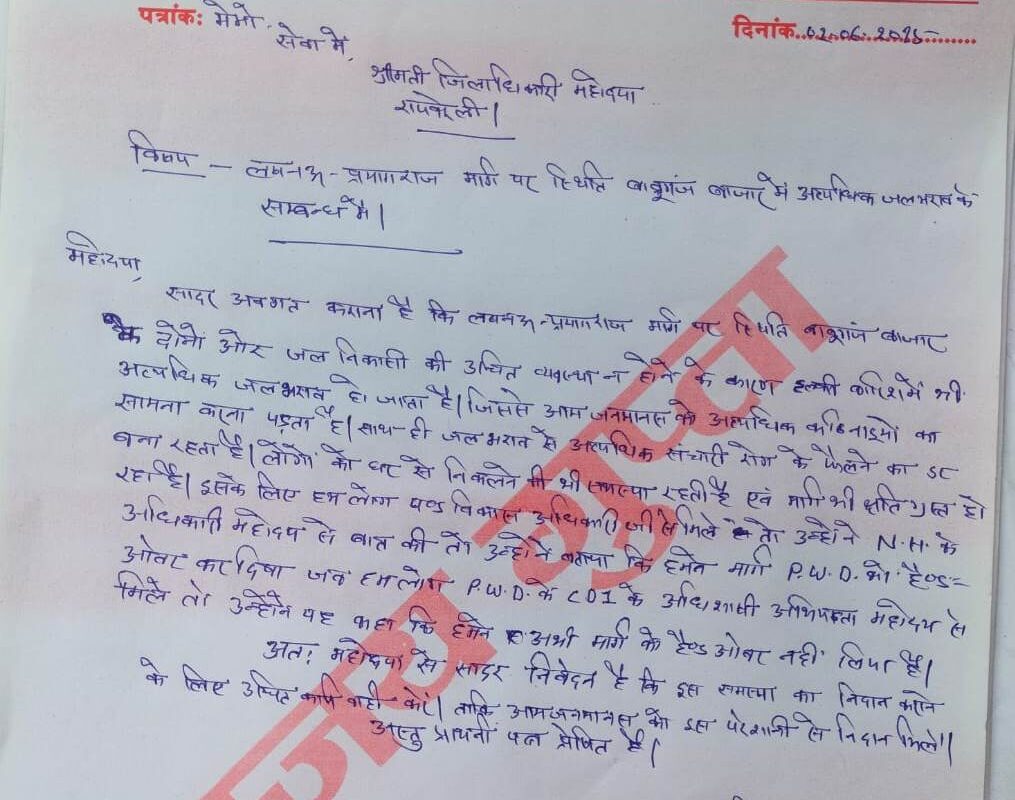 पत्रांक: मेमो. दिनांक..02.06.2025.......
सेवा में,
श्रीमती जिलाधिकारी महोदया
रायबरेली।
विषय – लखनऊ-प्रयागराज मार्ग पर स्थिति बाबूगंज बाजार में अत्यधिक जलभराव के
सम्बन्ध में।
महोदया,
सादर अवगत कराना है कि लखनऊ-प्रयागराज मार्ग पर स्थिति बाबूगंज बाजार
के दोनों ओर जल निकासी की उचित व्यवस्था न होने के कारण हल्की बारिश में भी
अत्यधिक जलभराव हो जाता है। जिससे आम जनमानस को अत्यधिक कठिनाइयों का
सामना करना पड़ता है। साथ-ही जलभराव से अत्यधिक संचारी रोग के फैलने का डर
बना रहता है। लोगों को घर से निकलने की भी समस्या रहती है एवं मार्ग भी क्षतिग्रस्त हो
रहा है। इसके लिए हम लोग खण्ड विकास अधिकारी जी से मिले तो उन्होंने N.H. के
अधिकारी महोदय से बात की तो उन्होंने बताया कि हमने मार्ग P.W.D. को हैण्ड=
ओवर कर दिया जब हम लोग P.W.D. के CD1 के अधिशाषी अभियन्ता महोदय से
मिले तो उन्होंने यह कहा कि हमने अभी मार्ग को हैण्ड ओवर नहीं लिया है।
अतः महोदया से सादर निवेदन है कि इस समस्या का निदान कराने
के लिए उचित कार्यवाही करें। ताकि आमजनमानस को इस परेशानी से निदान मिले।
अस्तु प्रार्थना पत्र प्रेषित है।
गुप्ता